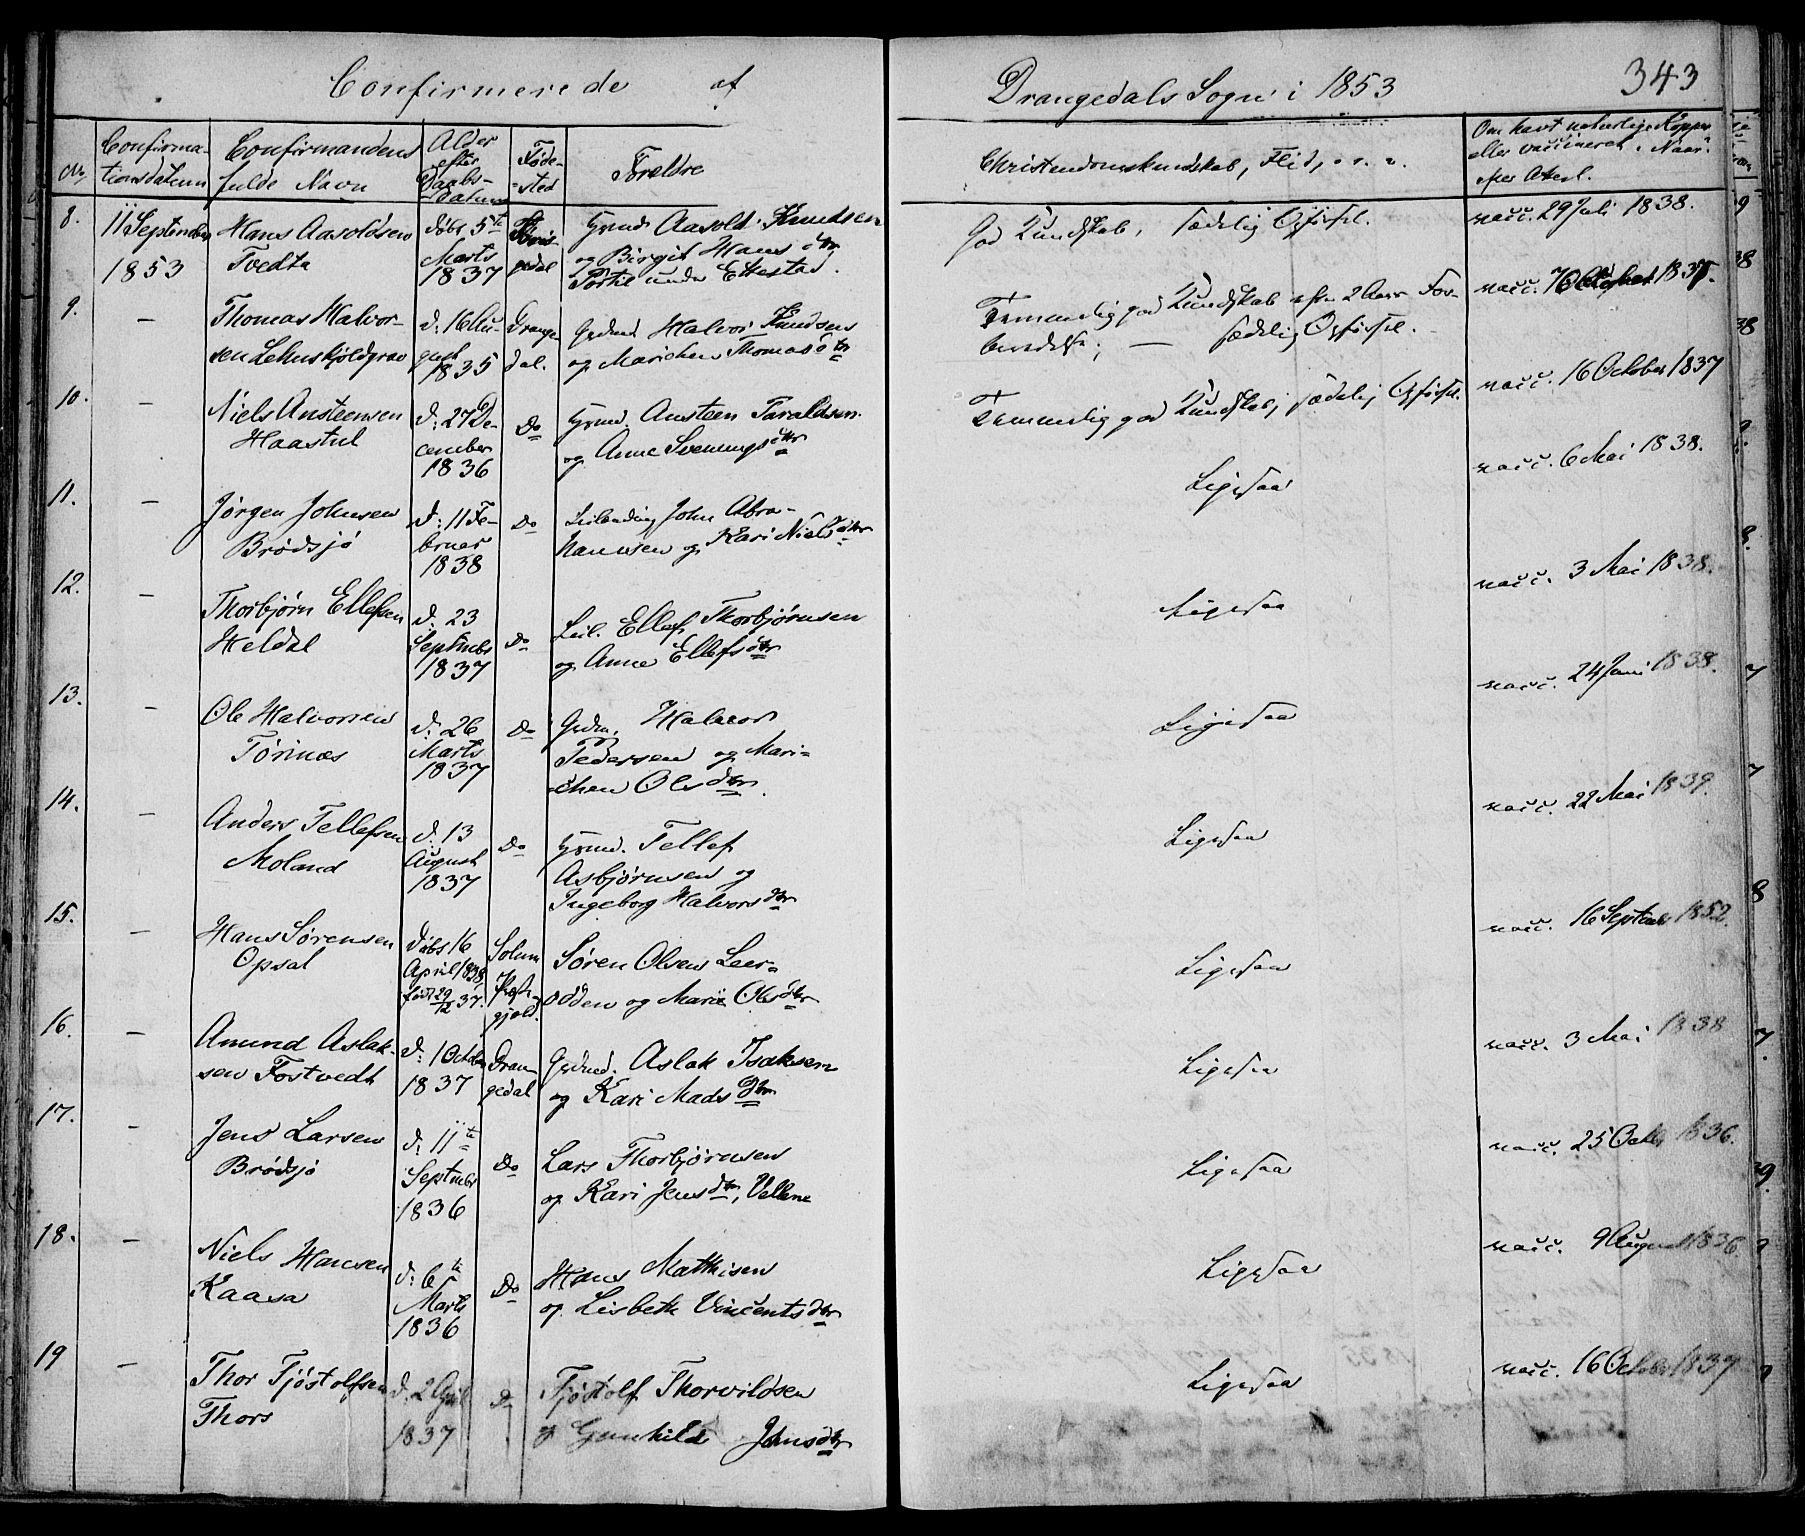 Confirmerede af Drangedals Sogn i 1853 343
No Confirmationsdatum Confirmandens fulde Navn Alder efter Daabsdatum Føde-sted Forældre Christendomskundskab, Flid, o. s. v. Om havt naturlige Kopper eller vaccineret, Naar
8. 11 September 1853 Hans Aasoldsen Tvedta døbt 5te Marts 1837 gedal Gmd. Aasold Knudsen og Birgit Hansdtr under Ettestad. God Kundskab, sædelig Opførsel. vacc. 29 Juli 1838.
9. – Thomas Halvorsen Lehnskjoldgrav d: 16 August 1835 Drangedal. Gdmd. Halvor Knudsen og Marichen Thomasdtr Temmelig god Kundskab efter 2 Aars Forberedelse; – sædelig Opførsel. – vacc.
10. – Niels Ansteensen Haastul d: 27 December 1836 Do Gmd. Ansteen Taraldsen og Anne Sveningsdtr Temmelig god Kundskab, sædelig Opførsel. vacc. 16 October 1837
11. – Jørgen Johnsen Brødsjø d: 11 Februar 1838 Do Leilending John Abrahamsen og Kari Nielsdtr Ligesaa vacc. 6 Mai 1838.
12. – Thorbjørn Ellefsen Heldal d: 23 Septembr 1837 Do Leil. Ellef Thorbjørnsen og Anne Ellefsdtr Ligesaa vacc. 3 Mai 1838.
13. – Ole Halvorsen Tørinæs d: 26 Marts 1837 Do Gdm. Halvor Pedersen og Marichen Olsdtr. Ligesaa vacc. 24 Juni 1838.
14. – Anders Tellefsen Moland d: 13 August 1837 Do Gmd. Tellef Asbjørnsen og Ingeborg Halvorsdtr Ligesaa vacc. 22 Mai 1839.
15. – Hans Sørensen Opsal Døbt 16 April 1838, født 29/12 37. Solum Præstegjeld. Søren Olsen Leerodden og Marie Olsdtr Ligesaa vacc. 16 Septembr 1852.
16. – Amund Aslaksen Tostvedt d: 1 October 1837 Drangedal Gdmd. Aslak Isaksen og Kari Madsdtr Ligesaa vacc. 3 Mai 1838
17. – Jens Larsen Brødsjø d: 11te Septembr 1836 Do Lars Thorbjørnsen og Kari Jensdtr, Vellene Ligesaa vacc. 25 Octbr 1836.
18. – Niels Hansen Kaasa d: 6te Marts 1836 Do Hans Mathisen og Lisbeth Vincentsdtr Ligesaa vacc. 9 August 1836
19 – Thor Tjøstolfsen Thors d. 2 April 1837 Do Tjøstolf Thorvildsen og Gunhild Jensdtr Ligesaa vacc. 16 October 1837